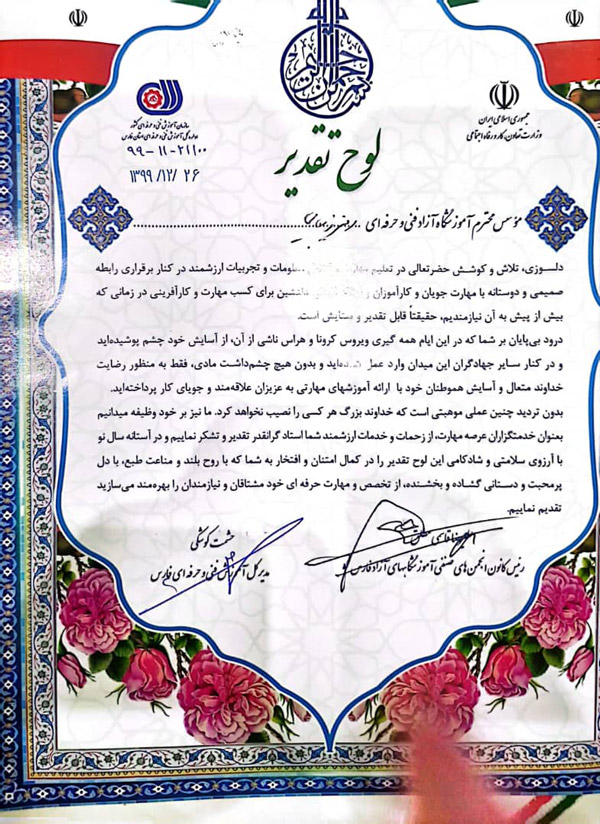 جمهوری اسلامی ایران
وزارت تعاون، کار و رفاه اجتماعی
سازمان آموزش فنی و حرفه ای کشور
اداره کل آموزش فنی و حرفه ای استان فارس
۹۹-۱۱-۲۱۱۰۰
۱۳۹۹/۱۲/۲۶
لوح تقدیر
مؤسس محترم آموزشگاه آزاد فنی و حرفه ای
دلسوزی، تلاش و کوشش حضرتعالی در تعلیم معلومات و تجربیات ارزشمند در کنار برقراری رابطه
صمیمی و دوستانه با مهارت جویان و کارآموزان و برای کسب مهارت و کارآفرینی در زمانی که
بیش از پیش به آن نیازمندیم، حقیقتاً قابل تقدیر و ستایش است.
درود بی‌پایان بر شما که در این ایام همه گیری ویروس کرونا و هراس ناشی از آن، از آسایش خود چشم پوشیده‌اید
و در کنار سایر جهادگران این میدان وارد عمل شده‌اید و بدون هیچ چشم‌داشت مادی، فقط به منظور رضایت
خداوند متعال و آسایش هموطنان خود با ارائه آموزشهای مهارتی به عزیزان علاقه‌مند و جویای کار پرداخته‌اید.
بدون تردید چنین عملی موهبتی است که خداوند بزرگ هر کسی را نصیب نخواهد کرد. ما نیز بر خود وظیفه میدانیم
بعنوان خدمتگزاران عرصه مهارت، از زحمات و خدمات ارزشمند شما استاد گرانقدر تقدیر و تشکر نماییم و در آستانه سال نو
با آرزوی سلامتی و شادکامی این لوح تقدیر را در کمال امتنان و افتخار به شما که با روح بلند و مناعت طبع، با دل
پرمحبت و دستانی گشاده و بخشنده، از تخصص و مهارت حرفه ای خود مشتاقان و نیازمندان را بهره‌مند می‌سازید
تقدیم نماییم.
رئیس کانون انجمن های صنفی آموزشگاههای آزاد فارس
حشمت کوشکی
مدیر کل آموزش فنی و حرفه ای فارس